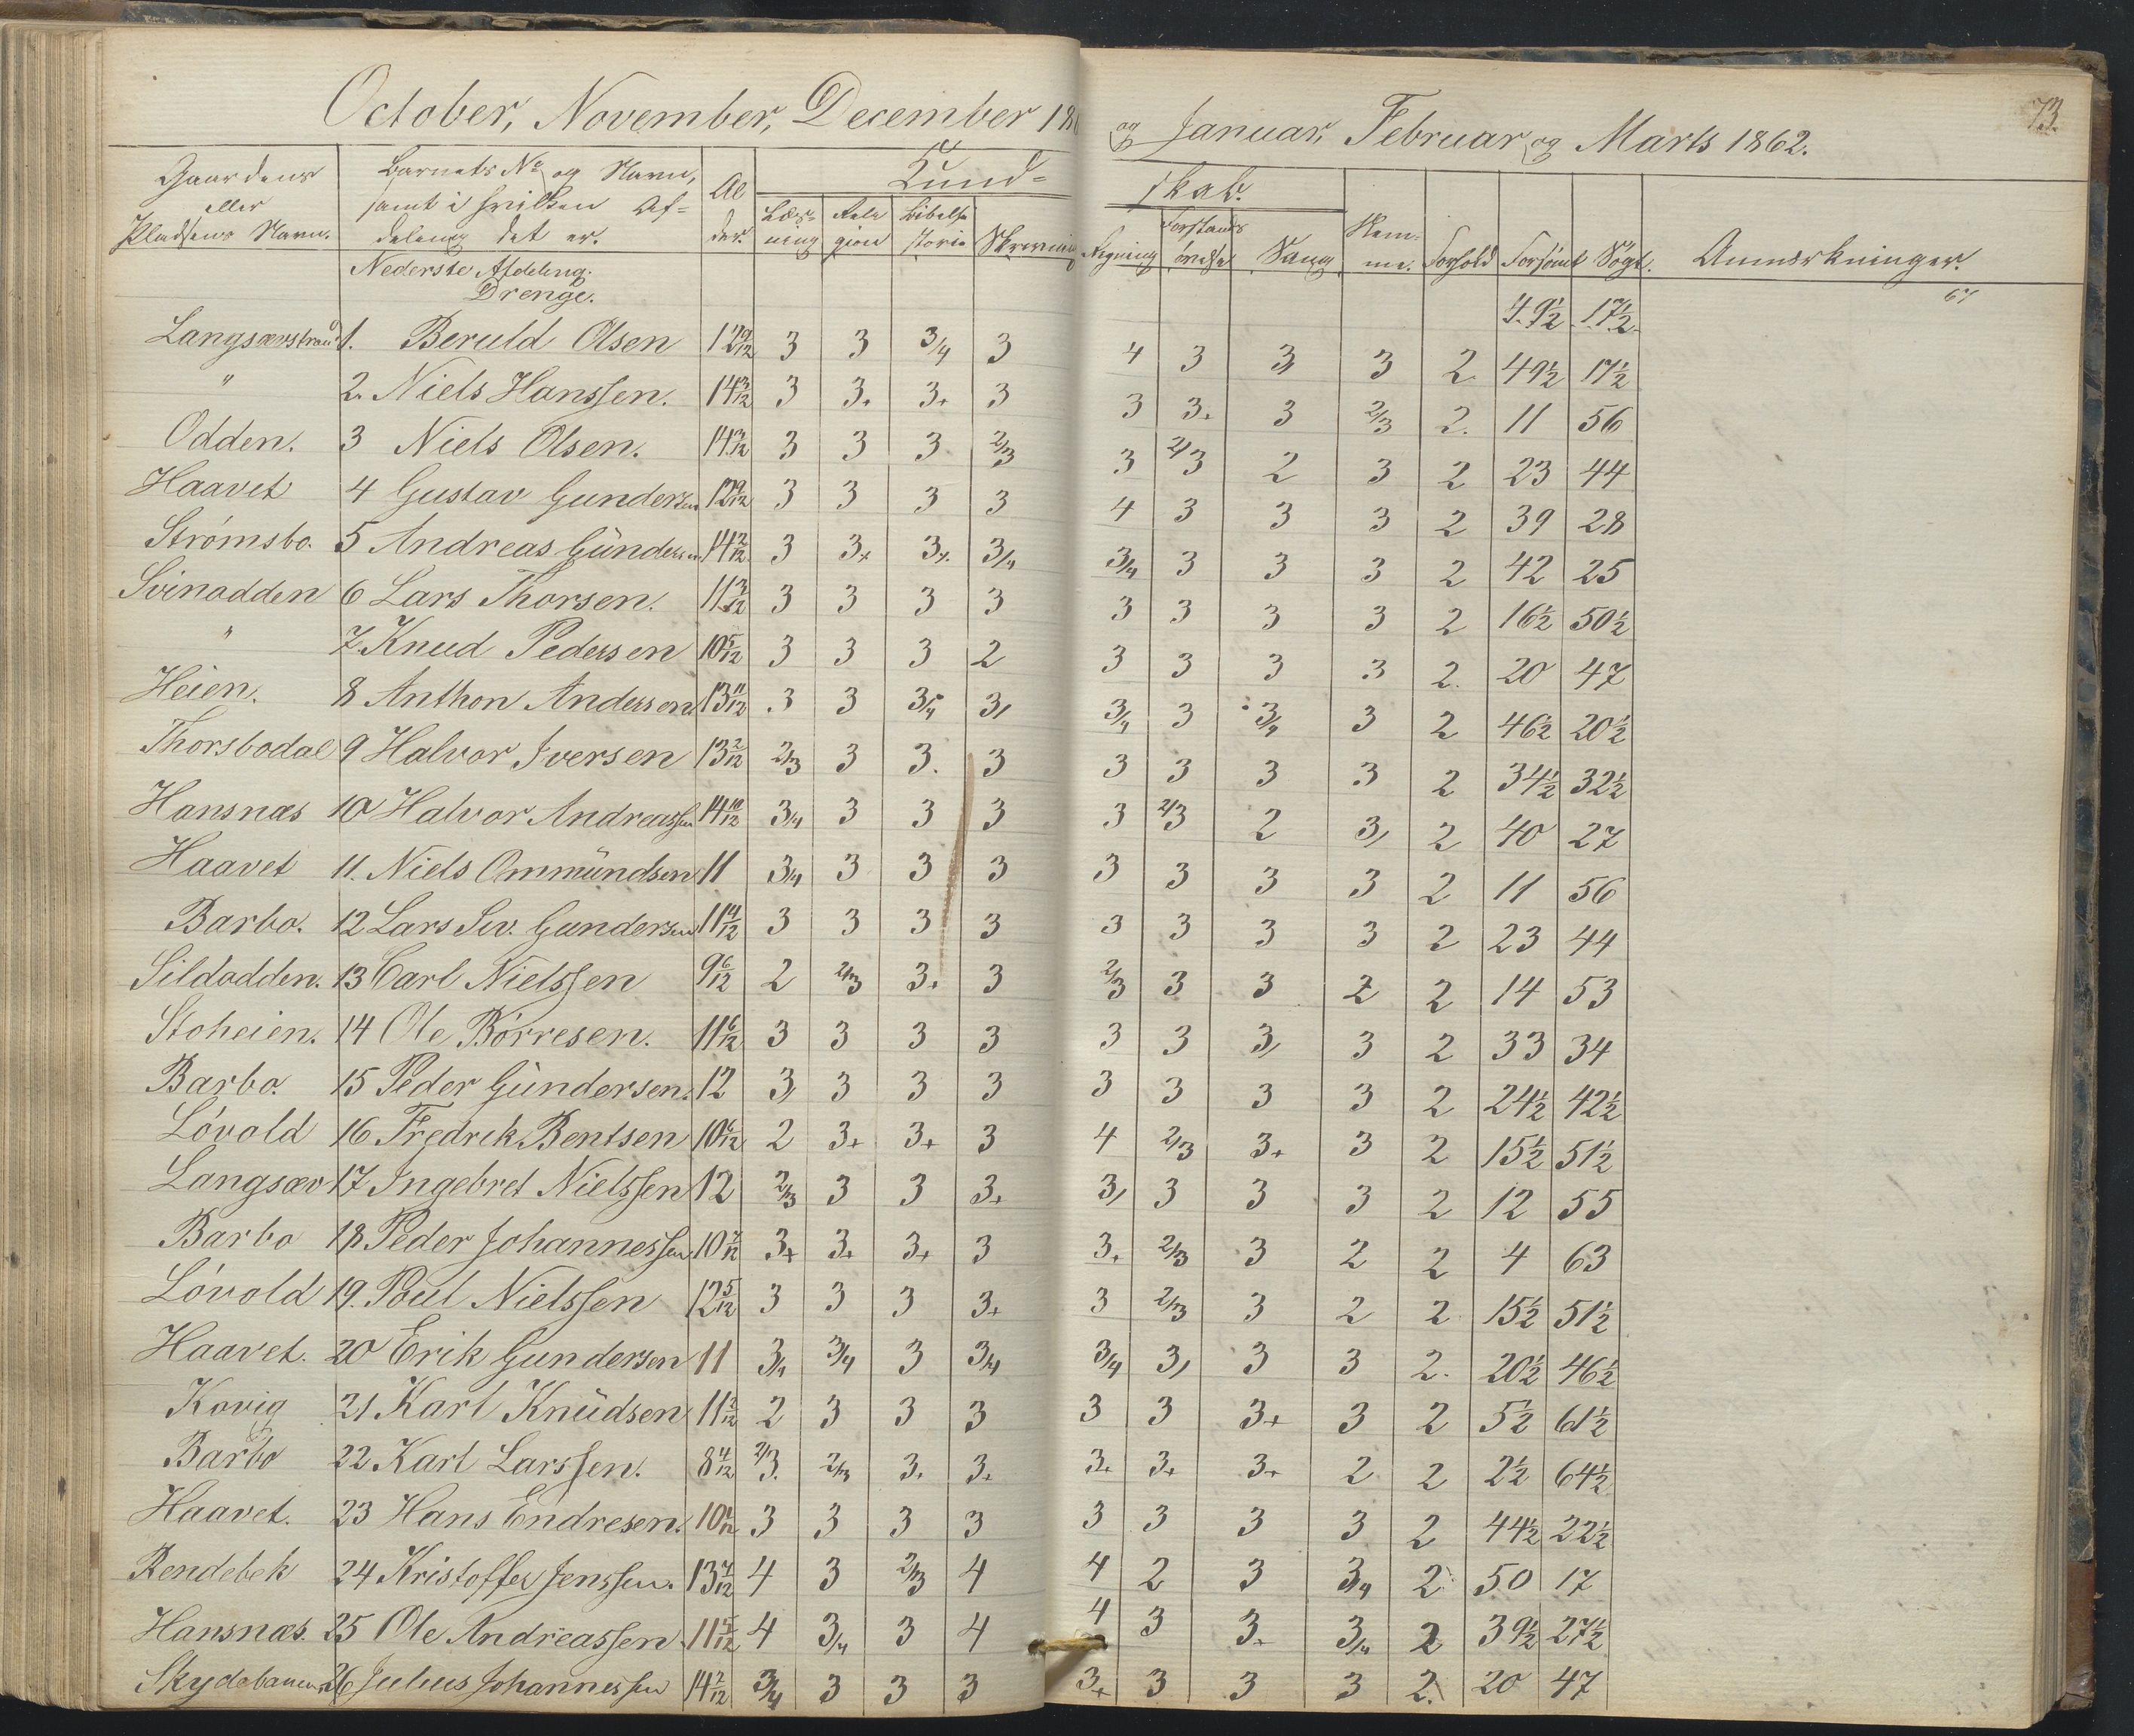 October, November, December 18
og Januar, Februar og Marts 1862.
73.
Gaardens eller Pladsens Navn.
Barnets No og Navn, samt i hvilken Afdeling det er.
Alder.
Kundskab.
Læsning
Religion
Bibelhistorie
Skrivning
Regning
Forstandsøvelse
Sang
Nemme.
Forhold
Forsömt
Sögt.
Anmærkninger.
Nederste Afdeling.
Drenge.
67
49½ 17½
Langsæv 1. Beruld Olsen 12 9/12 3 3 3/4 3 4 3 3, 3 2 49½ 17½
" 2. Niels Hanssen. 14 3/12 3 3+ 3+ 3 3 3+ 3 2/3 2. 11 56
Odden. 3 Niels Olsen. 14 3/12 3 3 3 2/3 3 2/3 2 3 2 23 44
Haavet 4 Gustav Gundersen 12 9/12 3 3 3 3 4 3 3 3 2 39 28
Strömsbo. 5 Andreas Gündersen 14 2/12 3 3+ 3+ 3/4 3/4 3 3 3 2 42 25
Svinodden 6 Lars Thorsen. 11 3/12 3 3 3 3 3 3 3 3 2 16½ 50½
" 7. Knud Pedersen 10 5/12 3 3 3 2 3 3 3 3 2. 20 47
Heien. 8 Anthon Andersen 13 11/12 3 3 3/4 3, 3/4 3 3/4 3 2 46½ 20½
Thorsbodal 9 Halvor Iversen 13 2/12 2/3 3 3. 3 3 3 3 3 2 34½ 32½
Hansnæs 10 Halvor Andreassen 14 10/12 3/4 3 3 3 3 2/3 2 3, 2 40 27
Haavet 11. Niels Ommündsen 11 3/4 3 3 3 3 3 3 3 2 11 56
Barbo. 12 Lars Sv. Gundersen 11 4/12 3 3 3 3 3 3 3 3 2 23 44
Sildodden. 13 Carl Nielssen 9 6/12 2 2/3 3+ 3 2/3 3 3 2 2 14 53
Stoheien. 14 Ole Börresen. 11 6/12 3 3 3 3 3 3 3, 3 2 33 34
Barbo. 15 Peder Gündersen. 12 3, 3 3 3 3 3 3 3 2 24½ 42½
Lövold 16 Fredrik Bentsen 10 6/12 2 3+ 3+ 3 4 2/3 3+ 3 2 15½ 51½
Langsæv 17 Ingebret Nielssen 12 2/3 3 3 3+ 3, 3 3 3 2 12 55
Barbo 18 Peder Johannessen 10 7/12 3+ 3+ 3+ 3 3+ 2/3 3 2 2 4 63
Lövold 19. Poul Nielssen 12 5/12 3 3 3 3+ 3 2/3 3 2 2 15½ 51½
Haavet. 20 Erik Gundersen 11 3/4 3/4 3 3/4 3/4 3, 3 3 2. 20½ 46½
Kovig 21 Karl Knüdsen 11 2/12 2 3 3 3 3 3 3+ 3 2 5½ 61½
Barbo 22 Karl Larssen. 8 4/12 2/3. 2/3 3+ 3+ 3+ 3+ 3+ 2 2 2½ 64½
Haavet. 23 Hans Endresen. 10 3 3 3 3 3 3 3 3 2 44½ 22½
Rendebek 24 Kristoffer Jenssen. 13 7/12 4 3 2/3 4 4 2 3 3/4 2 50 17
Hansnæs. 25 Ole Andreassen 11 5/12 4 3/4 3 4 4 3 3+ 3/4 2 39½ 27½
Skydebanen 26 Julius Johannessen 14 2/12 3/4 3 3 3 3+ 3 3 3 2. 20 47